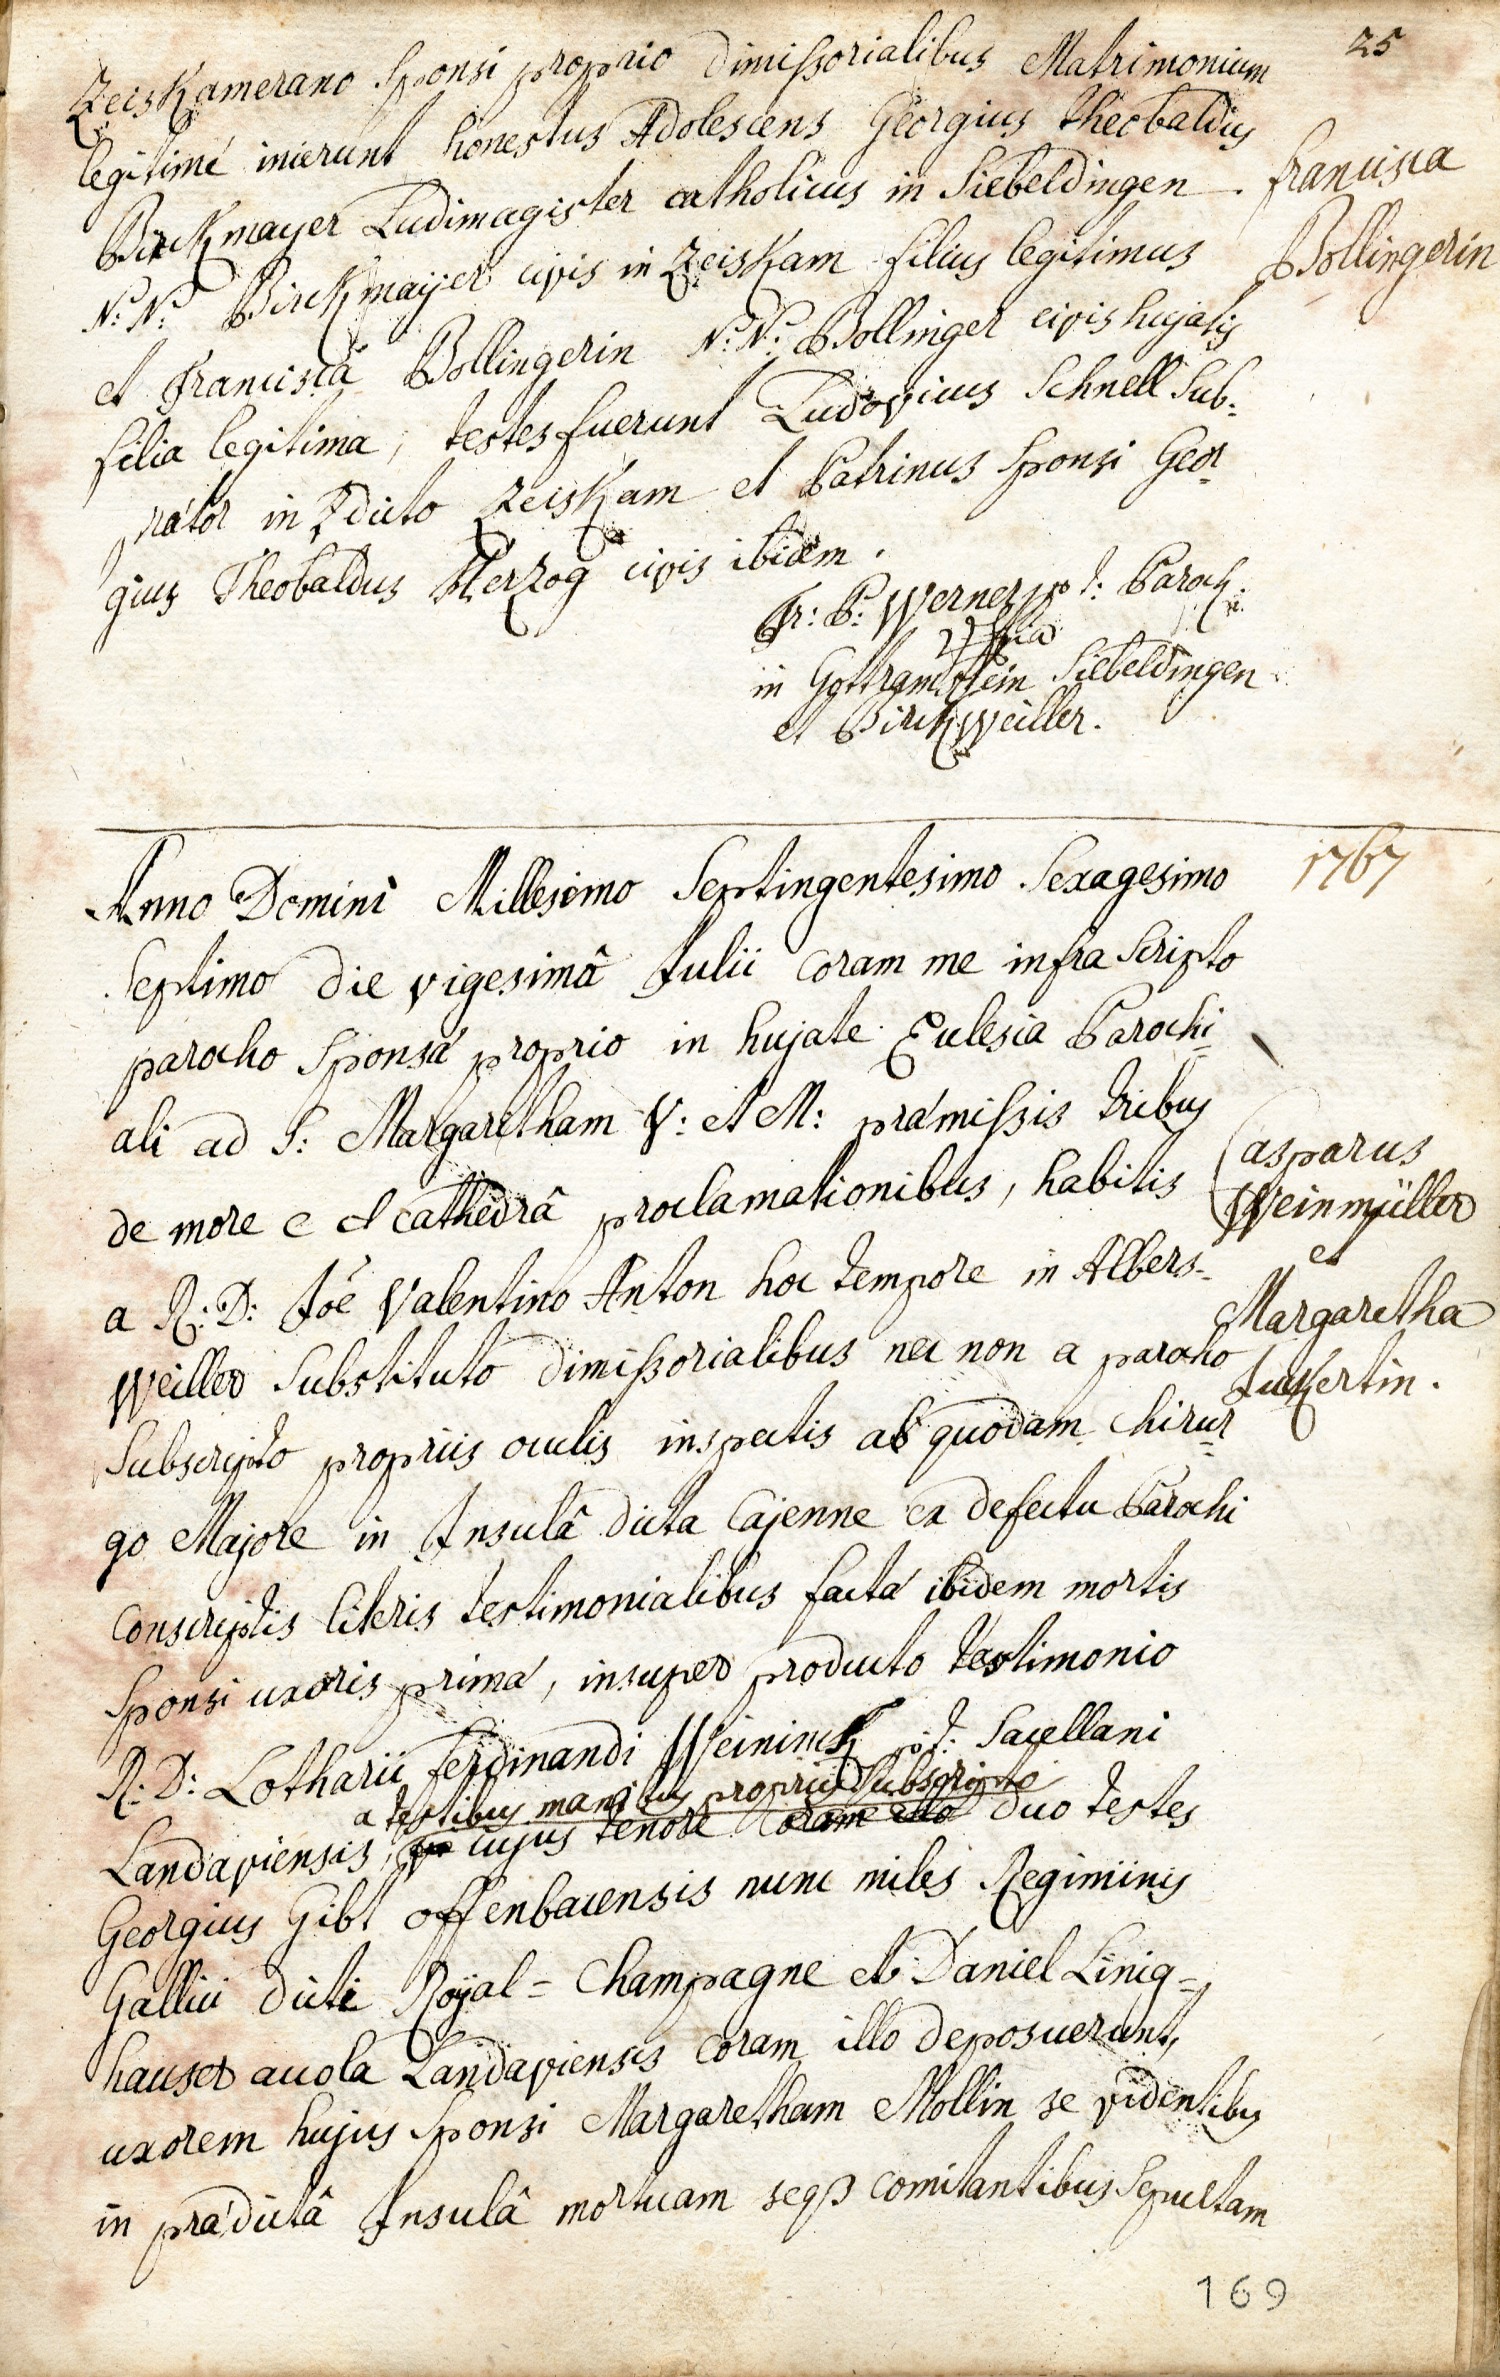 25
Zeiskamerano Sponsi proprio dimissorialibus Matrimonium
legitimé inierunt honestus Adolescens Georgius Theobaldus
Birckmayer Ludimagister catholicus in Siebeldingen.
N: N: Birckmaÿer civis in Zeiskam filius legitimus
et Franciscâ Bollingerin N: N: Bollinger civis hujatis
filia legitima, testes fuerunt Ludovicus Schnell Cub-
rator in dicto Zeiskam et Patrinus Sponsi Geor-
gius Theobaldus Herzog civis ibidem.
Francisca
Bollingerin
Fr: P: Werner p t: Paroch:
in Gottramstein Siebeldingen
et Birckweiller.
1767
Anno Domini Millesimo Septingentesimo Sexagesimo
Septimo die vigesimâ Julii coram me infra Scripto
parocho Sponsá proprio in hujate Eclesia Parochi-
ali ad S: Margaretham V: et M: prámissis tribus
de more e et cathedrâ proclamationibus, habitis
a R: D: Joé Valentino Anton hoc tempore in Albers-
weiller Substituto dimissorialibus nec non a parocho
Subscripto propriis oculis inspectis ab quodam Chirur-
go Majore in Insulâ dicta Cajenne ex defectu Parochi
conscriptis literis testimonialibus factá ibidem mortis
Sponsi uxoris primá, insuper producto testimonio
R: D: Lotharii Ferdinandi Weininck p: t: Sacellani
a testibus manibus propriis Subscripto
Landaviensis, cujus tenore coram illo duo testes
Georgius Gibt offenbacensis nunc miles Regiminis
Gallici dicti Roÿal = Champagne et Daniel Linig-
hauser accola Landaviensis coram illo deposuerunt,
uxorem hujus Sponsi Margaretham Mollin se videntibus
in prádictâ Insulâ mortuam seqз comitantibus Sepultam
Casparus
Weinmüller
et
Margaretha
Juckertin.
169